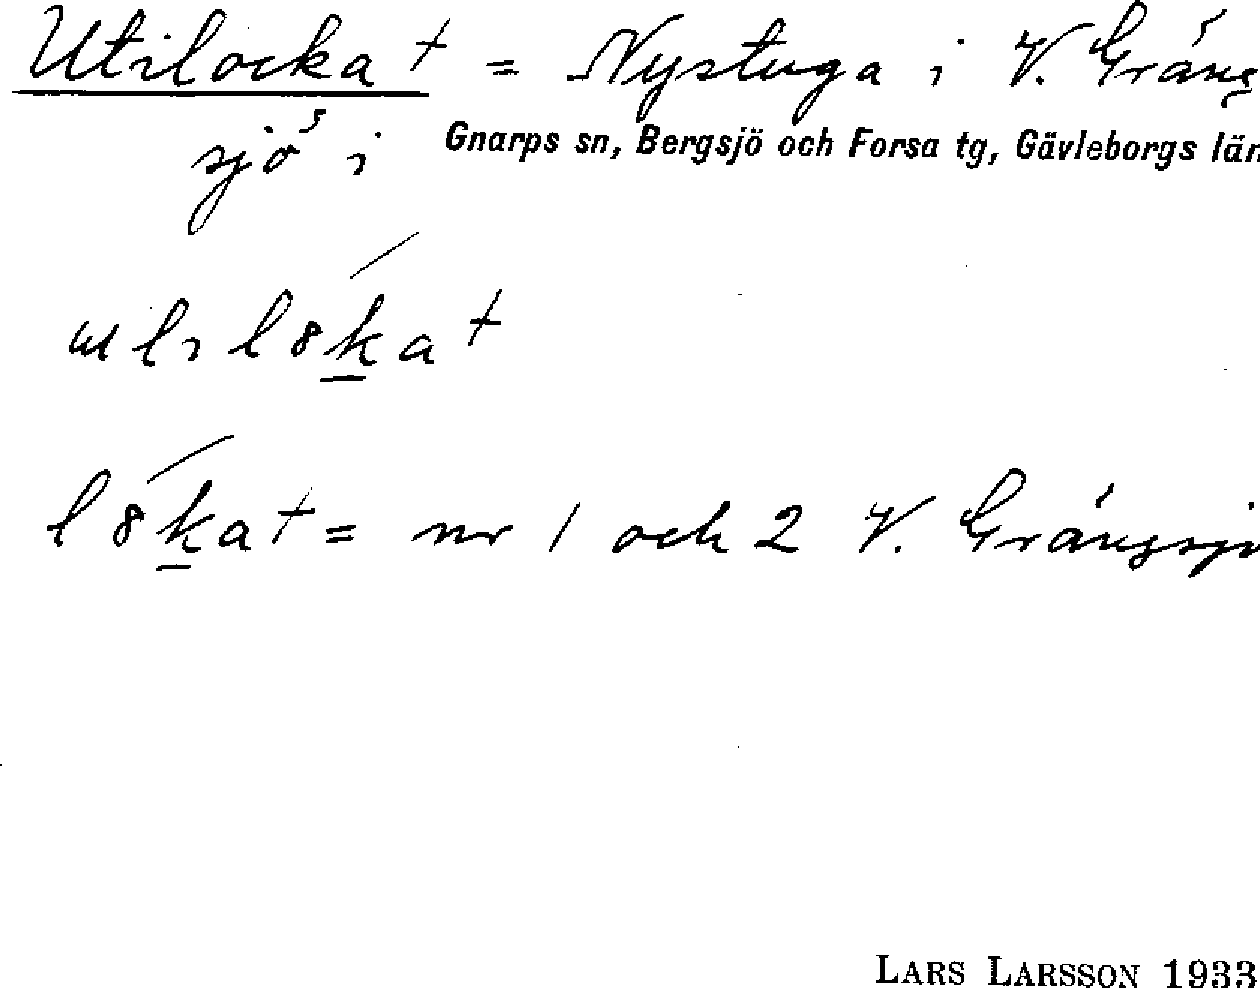 Utilocka + = Nystuga i V. Gräng
sjö i Gnarps sn, Bergsjö och Forsa tg, Gävleborgs län
= nr 1 och 2 V. Grängsjö
LARS LARSSON 1933